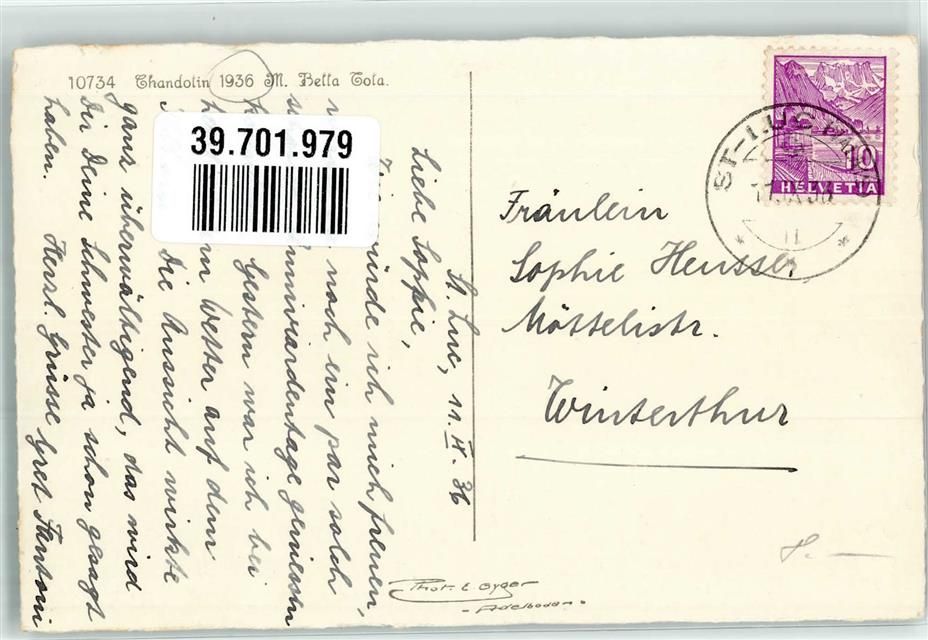 10734 Chandolin 1936 M. Bella Tola.
39.701.979
St. Luc, 11. IX. 36
Liebe Sophie,
würde ich mich freuen,
noch ein par solch
Gestern war ich bei
Wetter auf dem
Die Aussicht wirkte
ganz überwältigend, das wird
Dir Deine Schwester ja schon gesagt
haben. Herzl. Grüsse Gret
ST-LUC
11
10
HELVETIA
Fräulein
Sophie Heusser
Möttelistr.
Winterthur
Phot. E. Gyger
- Adelboden -